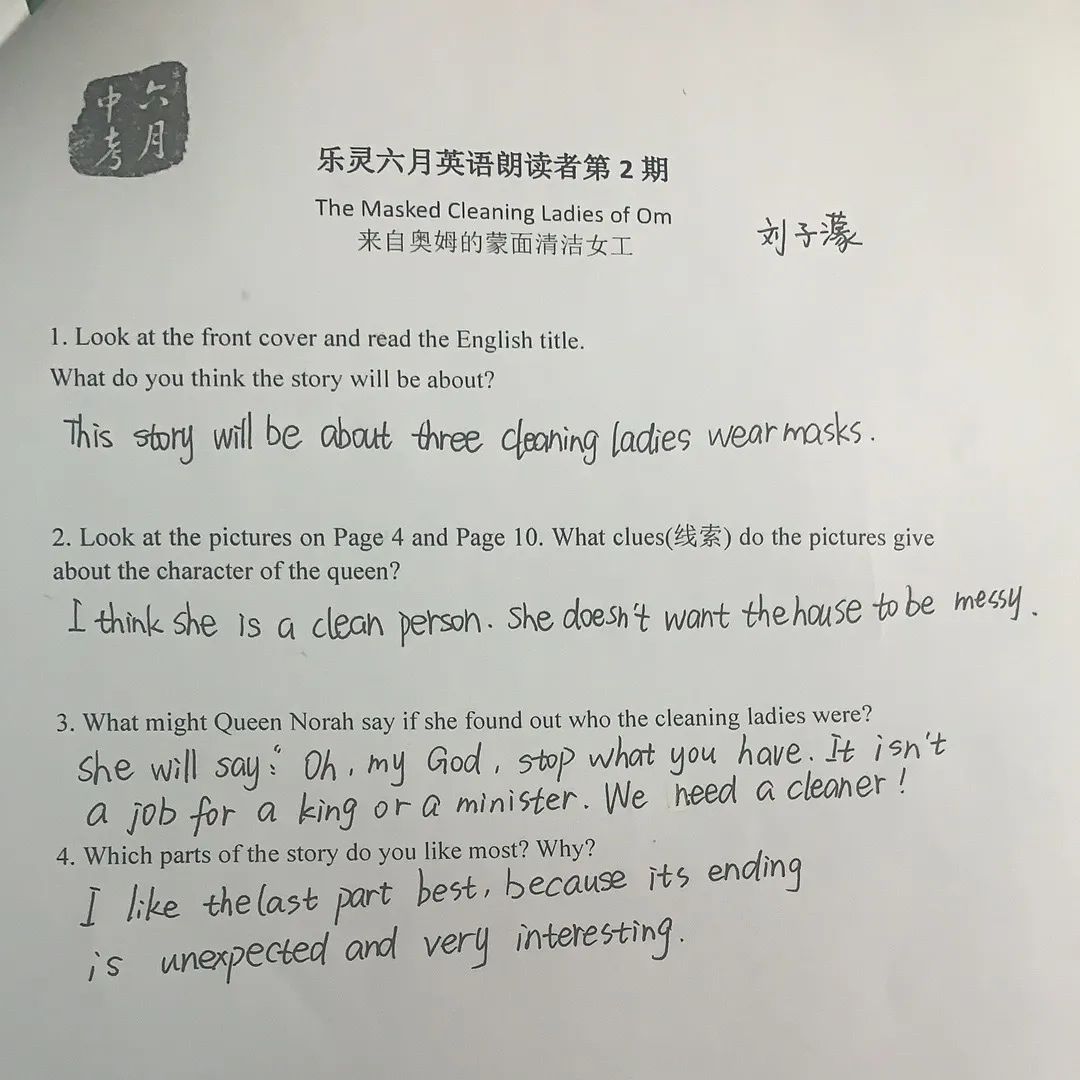 六月
中考
乐灵六月英语朗读者第 2 期
The Masked Cleaning Ladies of Om
来自奥姆的蒙面清洁女工
刘子濛
1. Look at the front cover and read the English title.
What do you think the story will be about?
This story will be about three cleaning ladies wear masks.
2. Look at the pictures on Page 4 and Page 10. What clues(线索) do the pictures give
about the character of the queen?
I think she is a clean person. She doesn't want the house to be messy.
3. What might Queen Norah say if she found out who the cleaning ladies were?
She will say: “Oh, my God, stop what you have. It isn't
a job for a king or a minister. We need a cleaner!
4. Which parts of the story do you like most? Why?
I like the last part best, because its ending
is unexpected and very interesting.